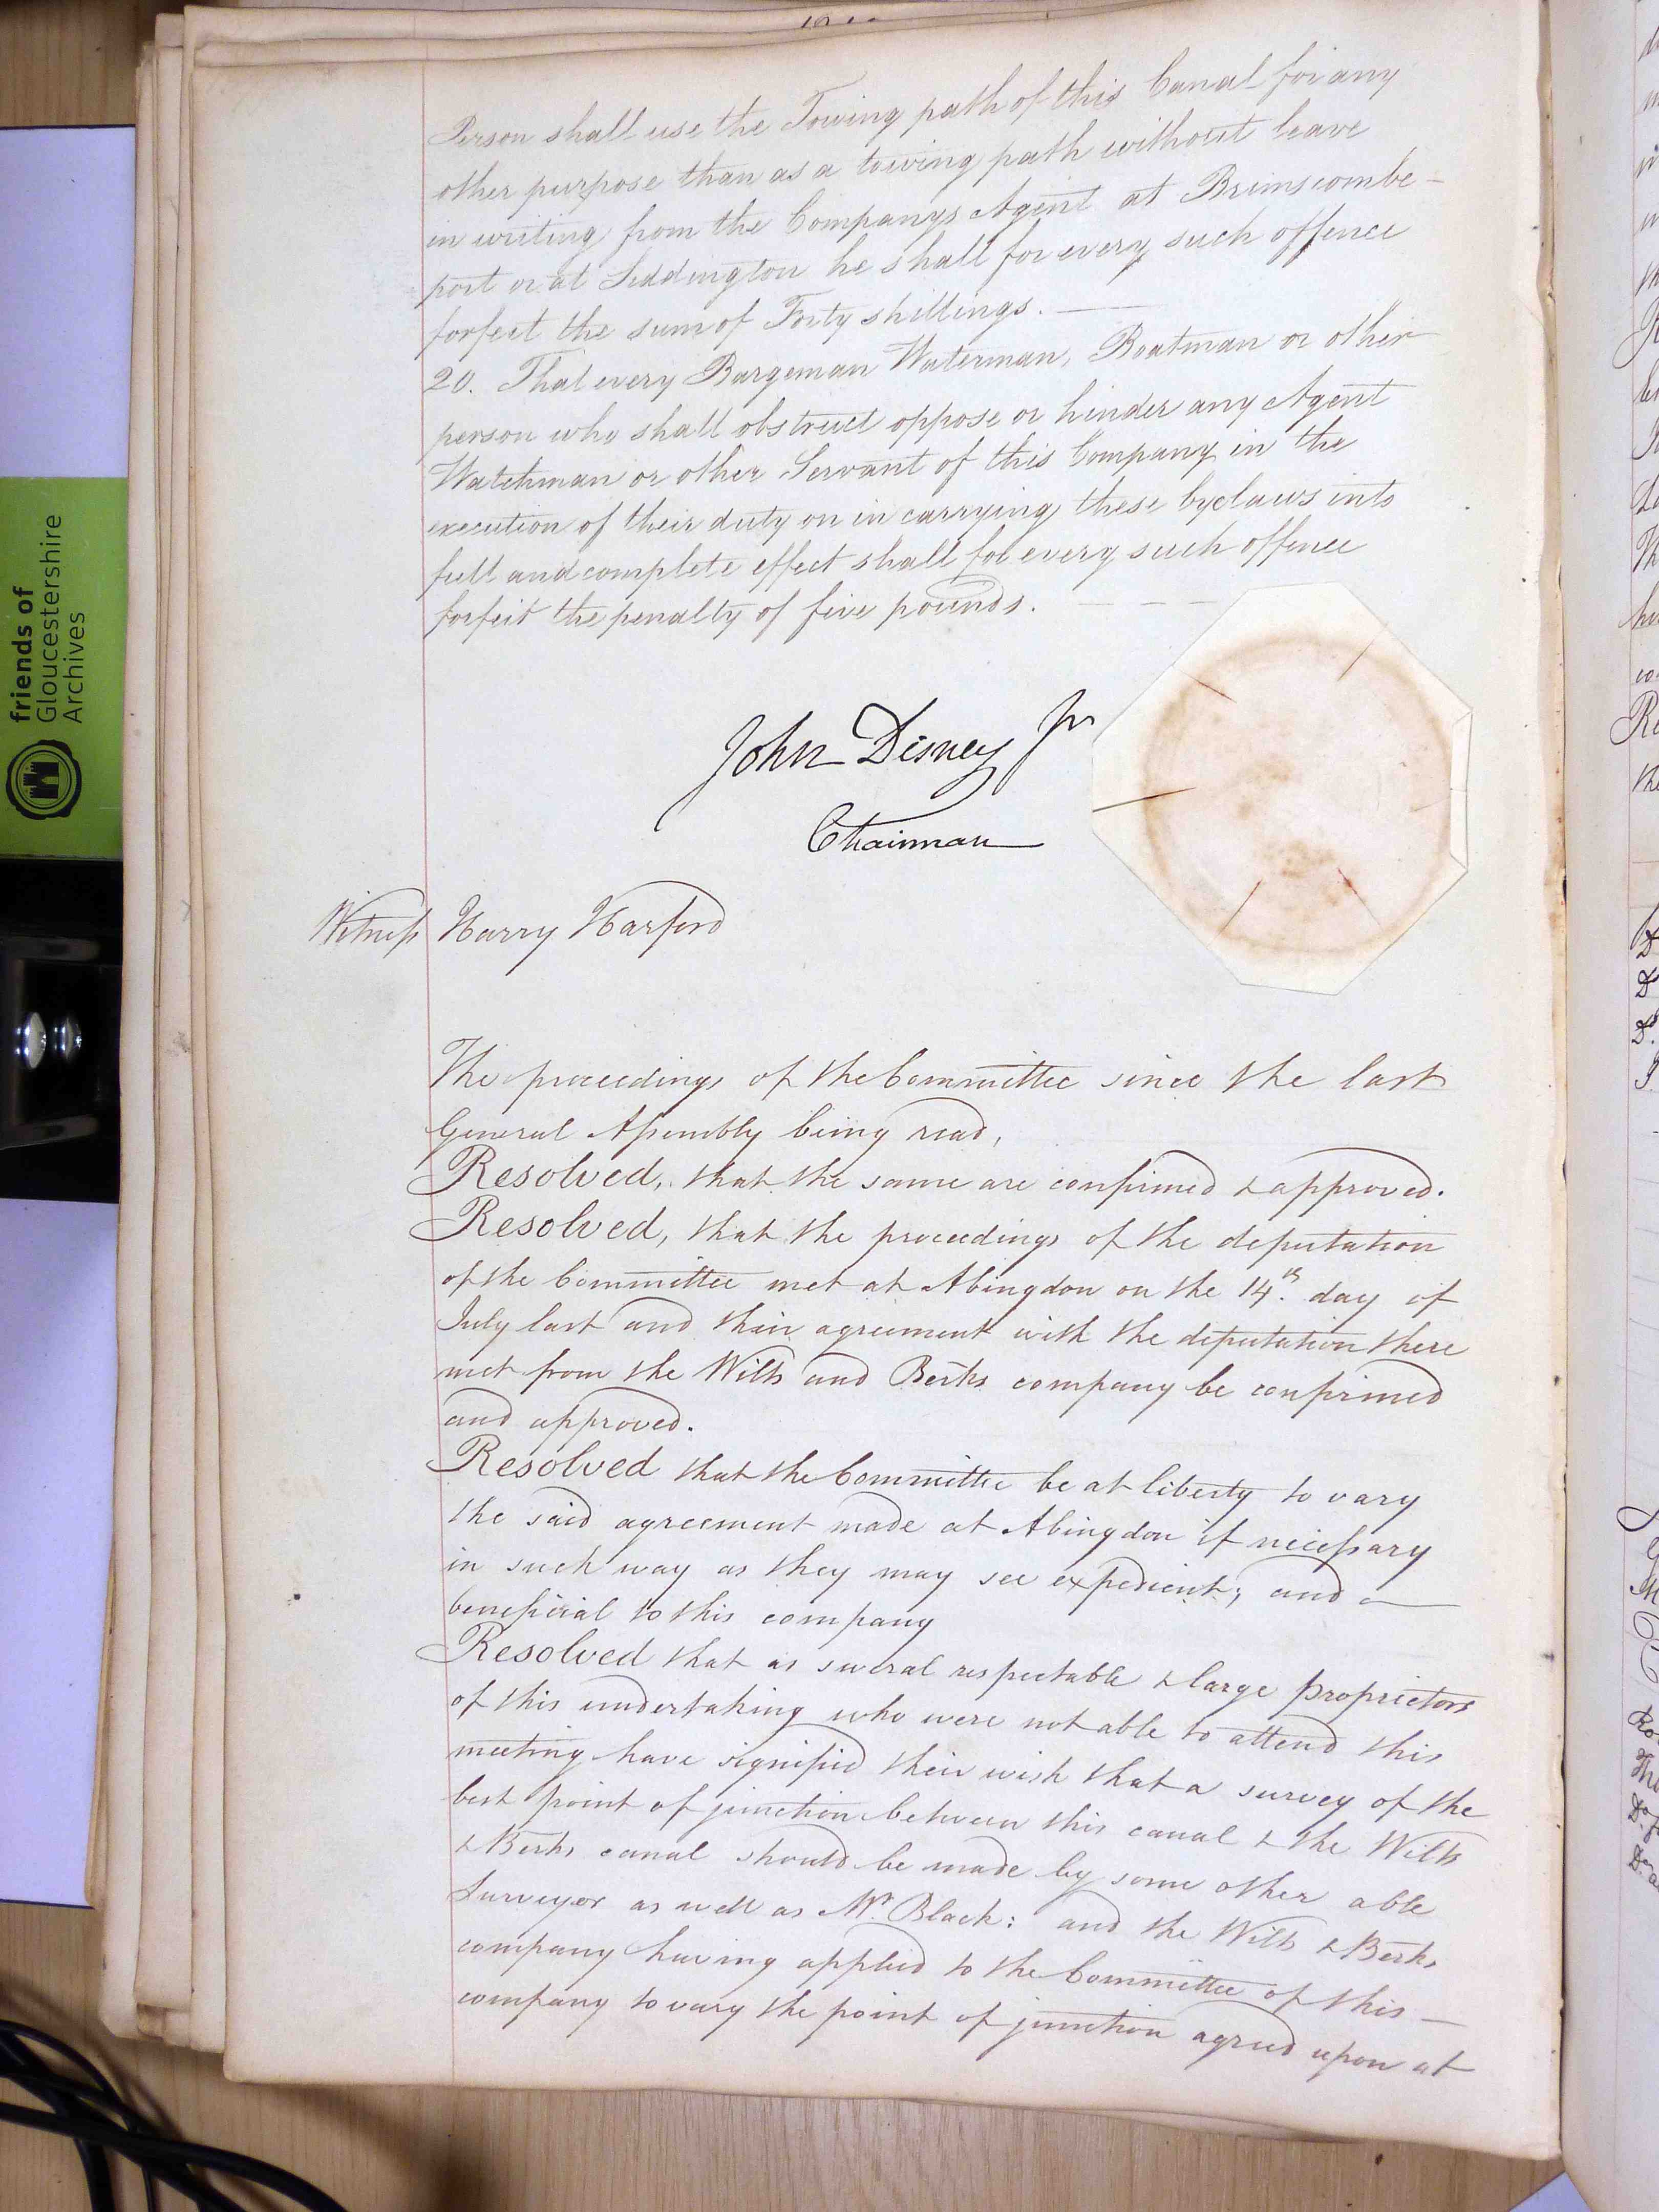 Person shall use the Towing path of this Canal for any
other purpose than as a towing path without leave
in writing from the Companys Agent at Brimscombe
port or at Siddington he shall for every such offence
forfeit the sum of Forty shillings.
20. That every Bargeman Waterman, Boatman or other
person who shall obstruct oppose or hinder any Agent
Watchman or other Servant of this Company in the
execution of their duty or in carrying these byelaws into
full and complete effect shall for every such offence
forfeit the penalty of five pounds.
John Disney Jr
Chairman
Witness Harry Harford
The proceedings of the Committee since the last
General Assembly being read,
Resolved, that the same are confirmed & approved.
Resolved, that the proceedings of the deputation
of the Committee met at Abingdon on the 14th. day of
July last and their agreement with the deputation there
met from the Wilts and Berks company be confirmed
and approved.
Resolved that the Committee be at liberty to vary
the said agreement made at Abingdon if necessary
in such way as they may see expedient; and
beneficial to this company
Resolved that as several respectable & large proprietors
of this undertaking who were not able to attend this
meeting have signified their wish that a survey of the
best point of junction between this canal & the Wilts
& Berks canal should be made by some other able
Surveyor as well as Mr. Black: and the Wilts & Berks
company having applied to the Committee of this
company to vary the point of junction agreed upon at
friends of
Gloucestershire
Archives